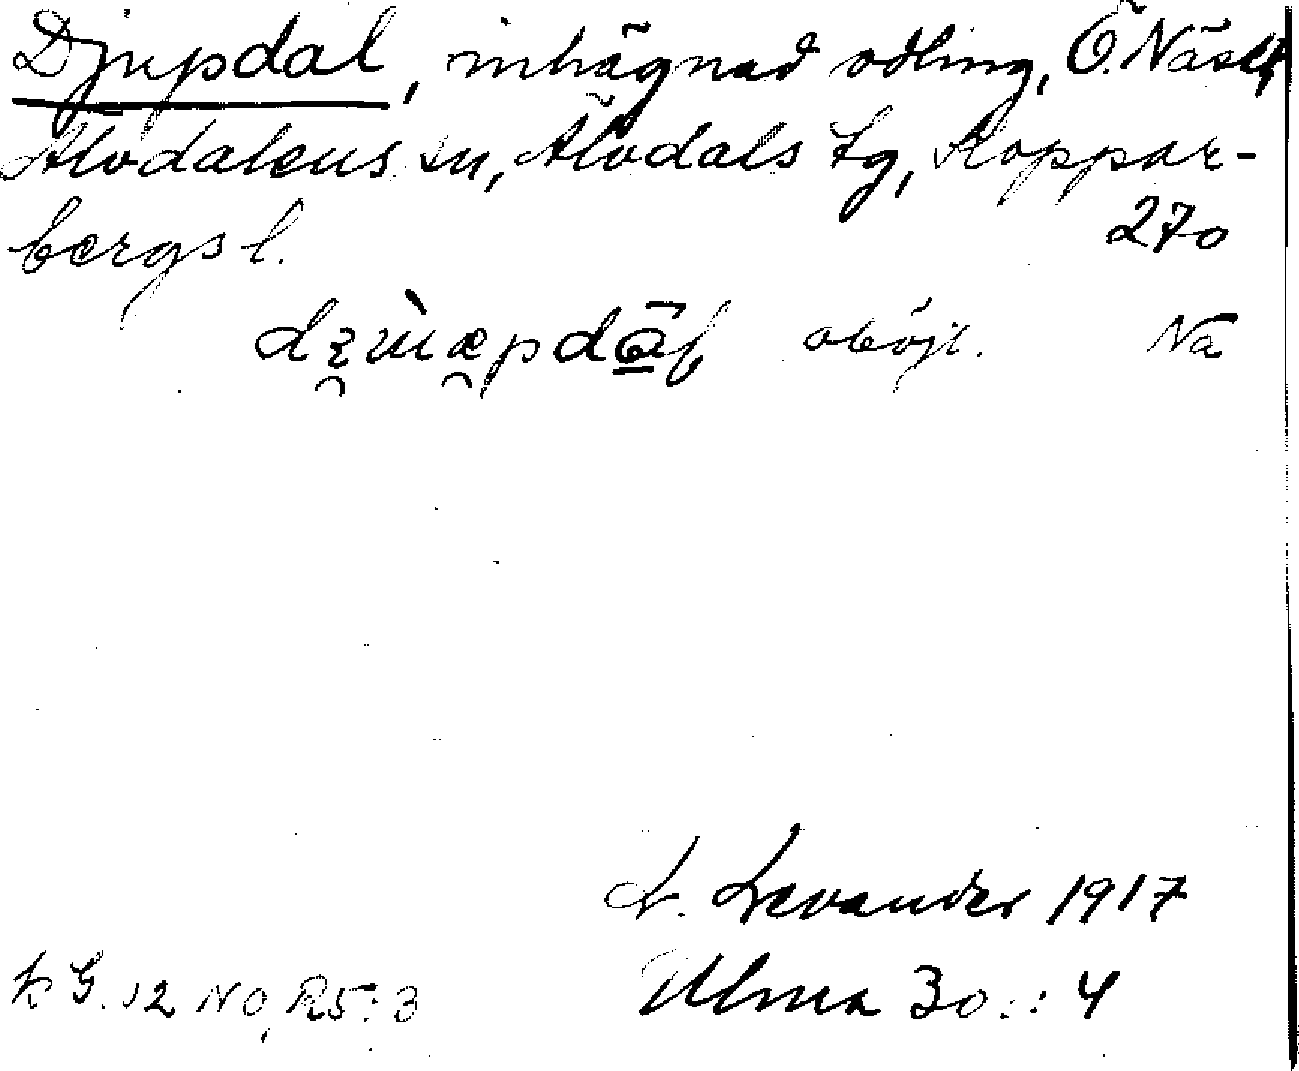 Djupdal, inhägnad odling, Ö. Näset,
Älvdalens sn, Älvdals tg, Koppar-
bergs l. 270
oböjl. Na
L. Levander 1917
Ulma 30::4
k G. 12 NO, R5:3